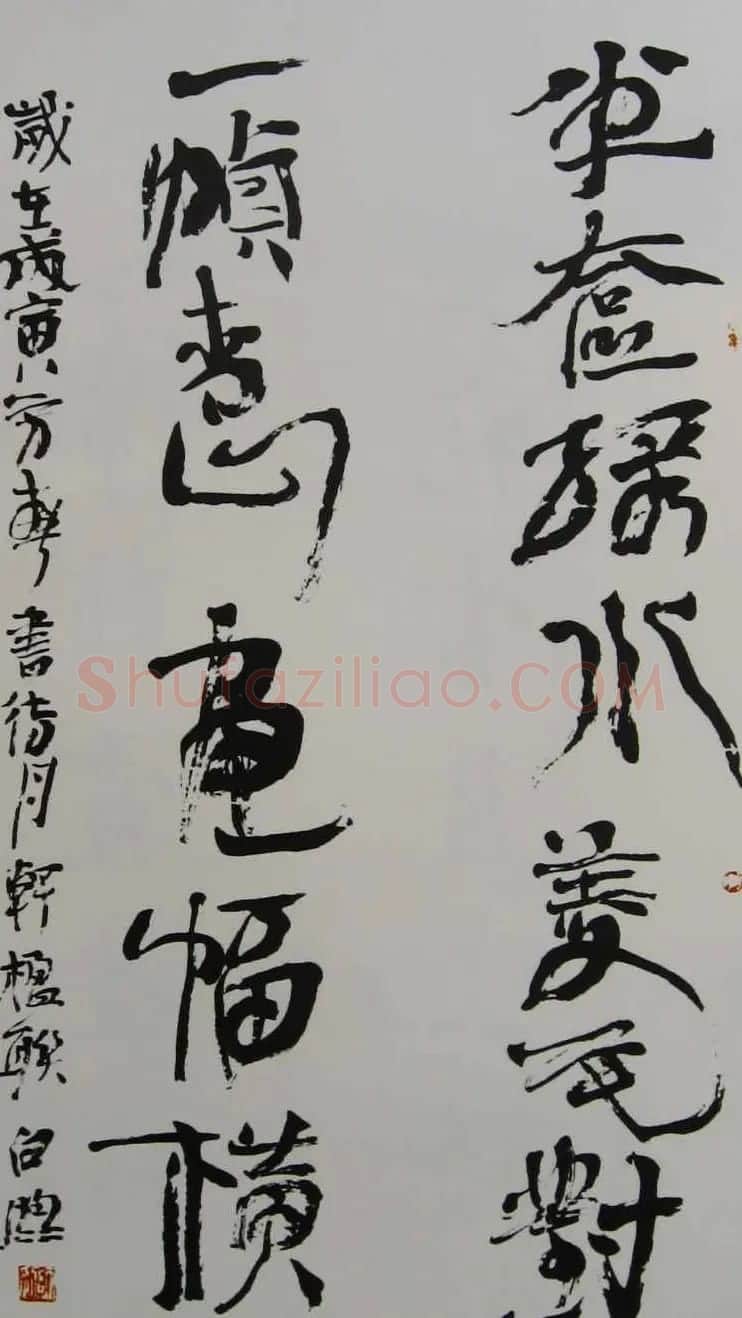 半奩綠水菱花對
一幀青山畫幅橫
歲在戊寅芳春書待月軒楹聯 白
Shufaziliao.COM